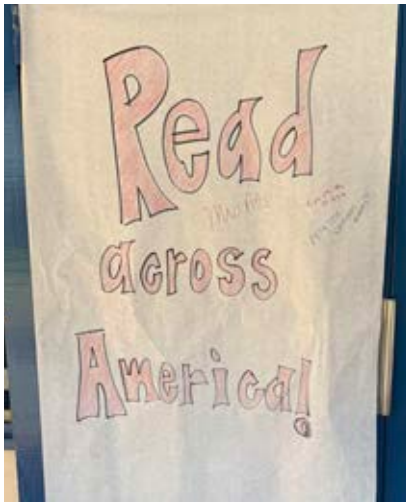 Read
across
America!